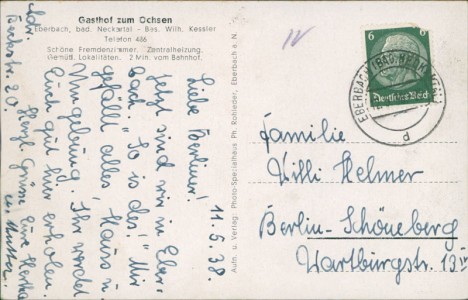 Gasthof zum Ochsen
Eberbach, bad. Neckartal - Bes. Wilh. Kessler
Telefon 486
Schöne Fremdenzimmer. Zentralheizung.
Gemütl. Lokalitäten. 2 Min. vom Bahnhof.
11.5.38.
Liebe Berliner!
Jetzt sind wir in Eber-
bach. So is des! Mir
gefällt alles, Haus u.
Umgebung. Ihr werdet
Euch gut hier erholen.
Herzl. Grüße Eure Hertha
u. Mutter.
Adr.
20.
Aufn. u. Verlag: Photo-Spezialhaus Ph. Ruhleder, Eberbach a. N.
6 6
Deutsches Reich
EBERBACH (BADEN)
d
Familie
Willi Helmer
Berlin-Schöneberg
Wartburgstr. 13